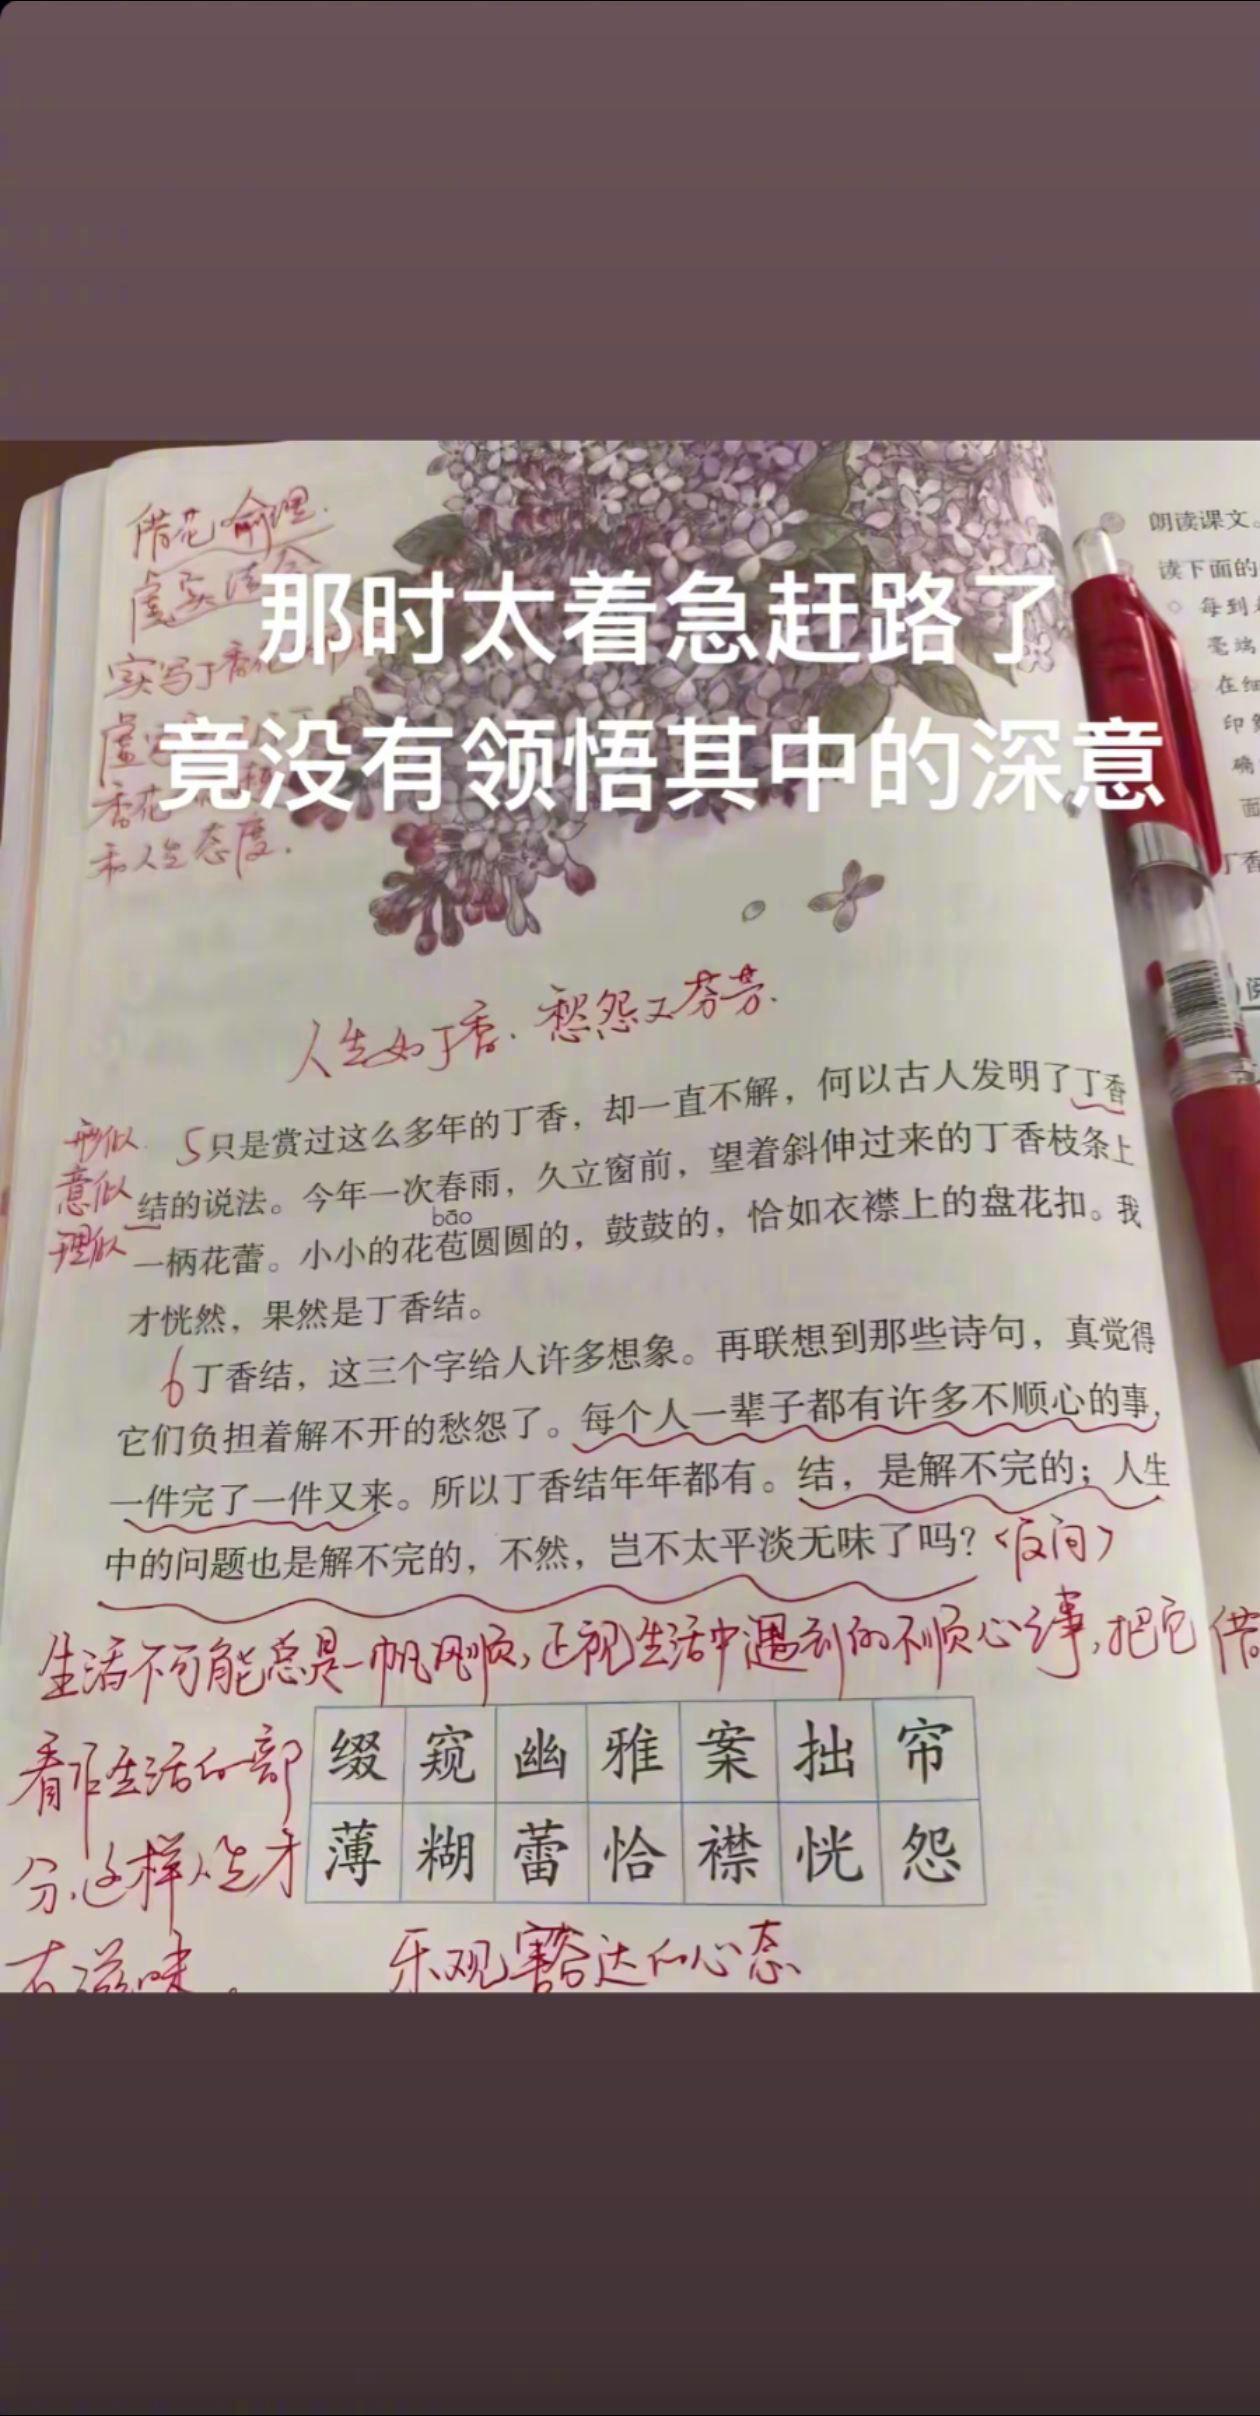 借花喻理.
虚实结合
实写丁香花
那时太着急赶路了
竟没有领悟其中的深意
香花
和人生态度.
人生如丁香.愁怨又芬芳.
形似
意似
理似
5只是赏过这么多年的丁香，却一直不解，何以古人发明了丁香
结的说法。今年一次春雨，久立窗前，望着斜伸过来的丁香枝条上
bāo
一柄花蕾。小小的花苞圆圆的，鼓鼓的，恰如衣襟上的盘花扣。我
才恍然，果然是丁香结。
6丁香结，这三个字给人许多想象。再联想到那些诗句，真觉得
它们负担着解不开的愁怨了。每个人一辈子都有许多不顺心的事，
一件完了一件又来。所以丁香结年年都有。结，是解不完的；人生
中的问题也是解不完的，不然，岂不太平淡无味了吗？〈反问〉
生活不可能总是一帆风顺,正视生活中遇到的不顺心之事,把它借
看作生活的部
分,这样人生才
有滋味。
缀 窥 幽 雅 案 拙 帘
薄 糊 蕾 恰 襟 恍 怨
乐观豁达的心态
朗读课文。
读下面的
每到
毫端
在细
印象
确
面
丁香
阅